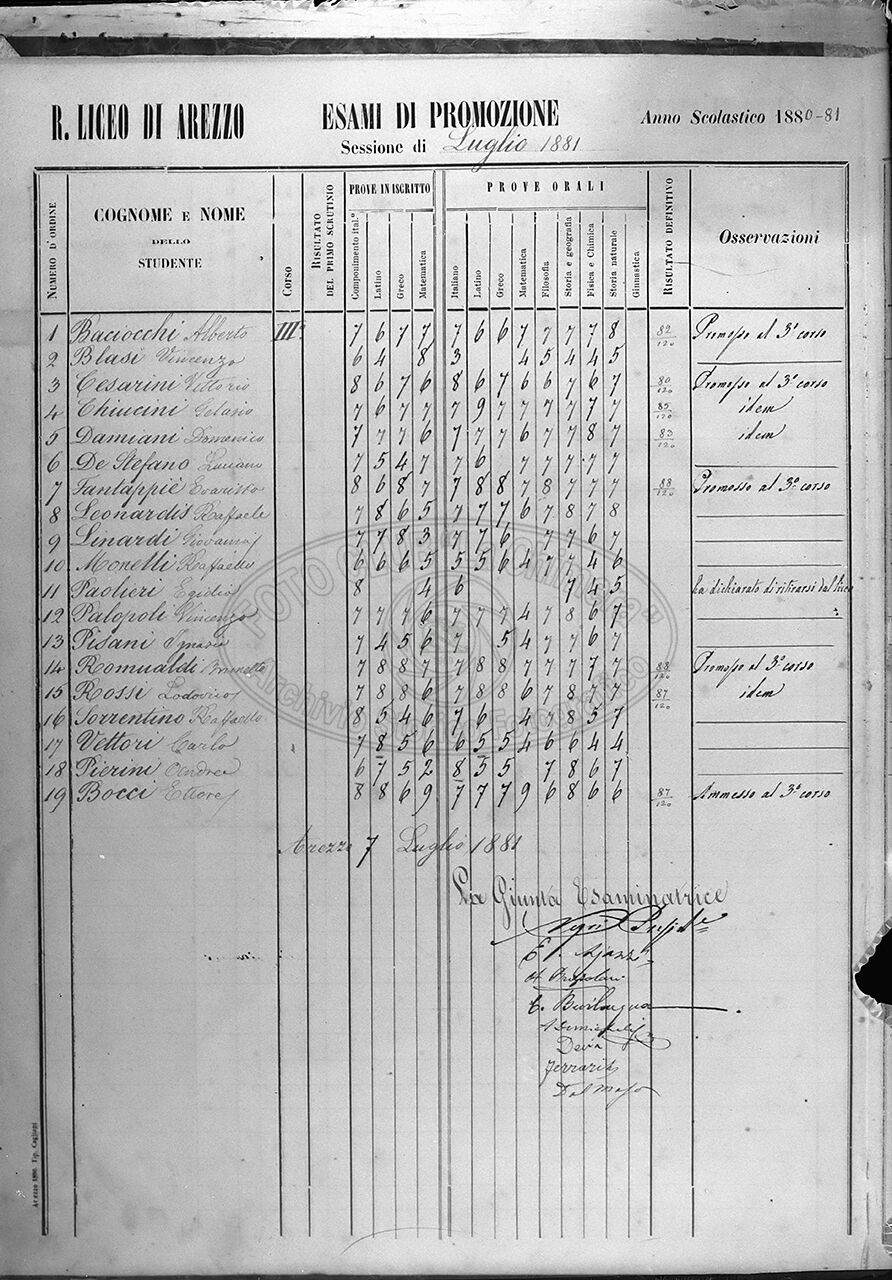 R. LICEO DI AREZZO ESAMI DI PROMOZIONE Anno Scolastico 1880-81
Sessione di Luglio 1881
NUMERO D'ORDINE COGNOME E NOME DELLO STUDENTE Corso RISULTATO DEL PRIMO SCRUTINIO PROVE IN ISCRITTO PROVE ORALI RISULTATO DEFINITIVO Osservazioni
Componimento ital.º Latino Greco Matematica Italiano Latino Greco Matematica Filosofia Storia e geografia Fisica e Chimica Storia naturale Ginnastica
1 Baciocchi Alberto IIIº 7 6 7 7 7 6 6 7 7 7 7 8 82/120 Promosso al 3º corso
2 Blasi Vincenzo 6 4 8 3 4 5 4 4 5
3 Cesarini Vittorio 8 6 7 6 8 6 7 6 6 7 6 7 80/120 Promosso al 3º corso
4 Chiucini 7 6 7 7 7 9 7 7 7 7 7 7 85/120 idem
5 Damiani Domenico 7 7 7 6 7 7 7 6 7 7 8 7 83/120 idem
6 De Stefano Luciano 7 5 4 7 7 6 7 7 7 7 7
7 Fantappiè Evaristo 8 6 8 7 7 8 8 7 8 7 7 7 88/120 Promosso al 3º corso
8 Leonardis Raffaele 7 8 6 5 7 7 7 6 7 8 7 8
9 Linardi Giovanni 7 7 8 3 7 7 6 7 7 6 7
10 Monetti Raffaello 6 6 6 5 5 5 6 4 7 7 4 6
11 Paolieri Egidio 8 4 6 7 4 5 ha dichiarato di ritirarsi dal liceo
12 Palopoli Vincenzo 7 7 7 6 7 7 7 4 7 8 6 7
13 Pisani Ignazio 7 4 5 6 7 5 4 7 7 6 7
14 Romualdi Brunetto 7 8 8 7 7 8 8 7 7 7 7 7 88/120 Promosso al 3º
15 Rossi Lodovico 7 8 8 6 7 8 8 6 7 8 7 7 87/120 idem
16 Sorrentino Raffaello 8 5 4 6 7 6 4 7 8 5 7
17 Vettori Carlo 7 8 5 6 6 5 5 4 6 6 4 4
18 Pierini Andrea 6 7 5 2 8 5 5 7 8 6 7
19 Bocci Ettore 8 8 6 9 7 7 7 9 6 8 6 6 87/120 Ammesso al 3º corso
Arezzo 7 Luglio 1881
La Giunta Esaminatrice
Deva
Ferraris
Dal Maso
Arezzo 1880. Tip. Cagliani
Archivio